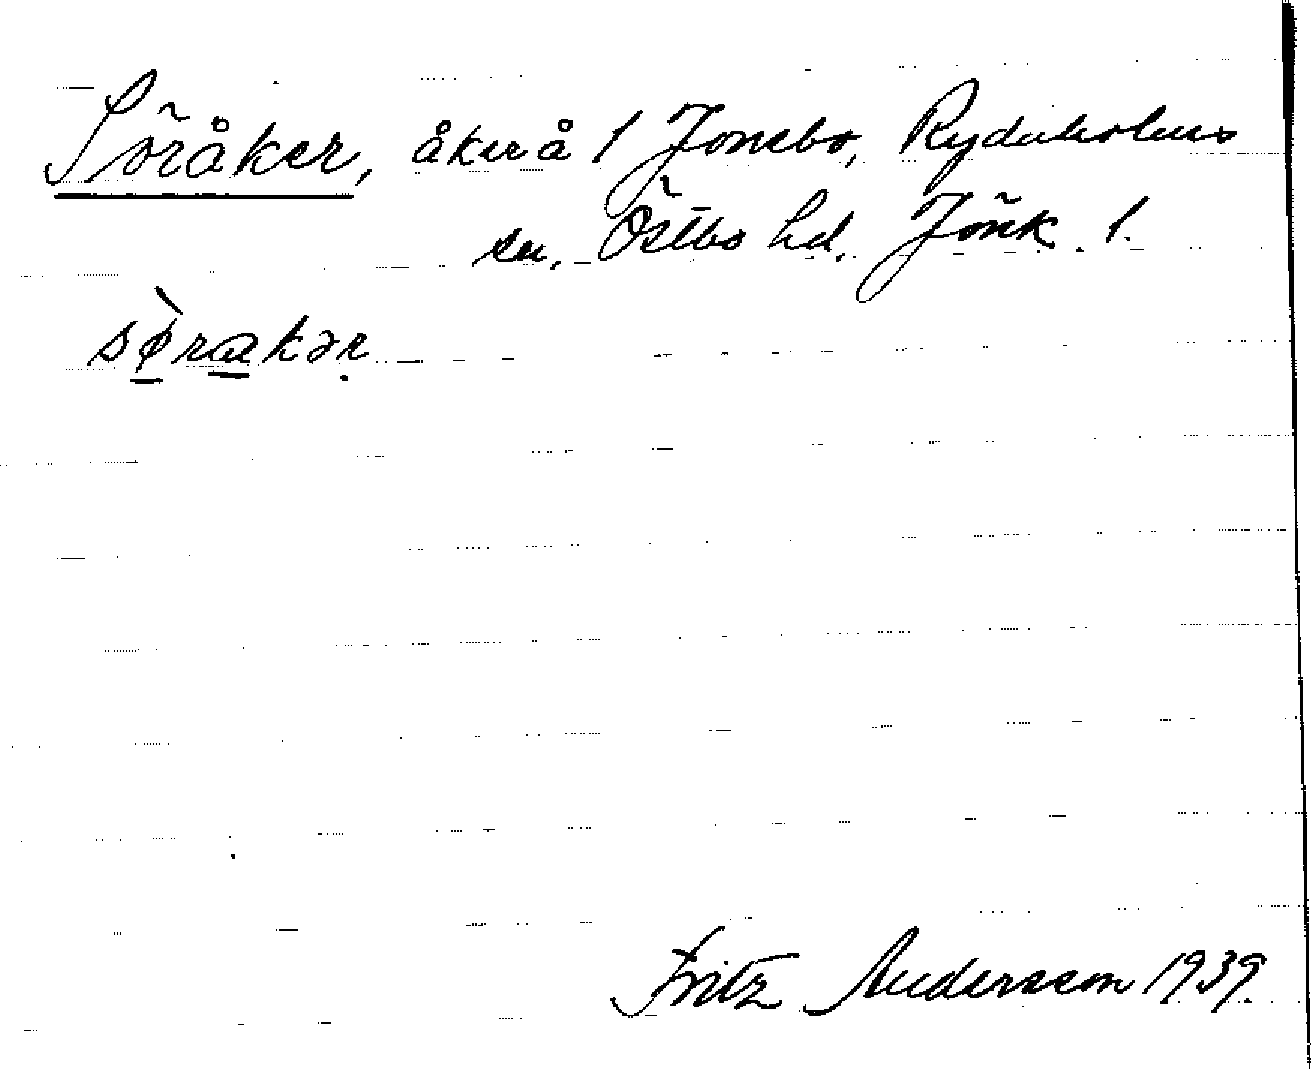 Söråker, åker å 1 Jonsbo, Rydaholms
sn, Östbo hd, Jönk. l.
sø̀rakər
Fritz Andersson 1939.